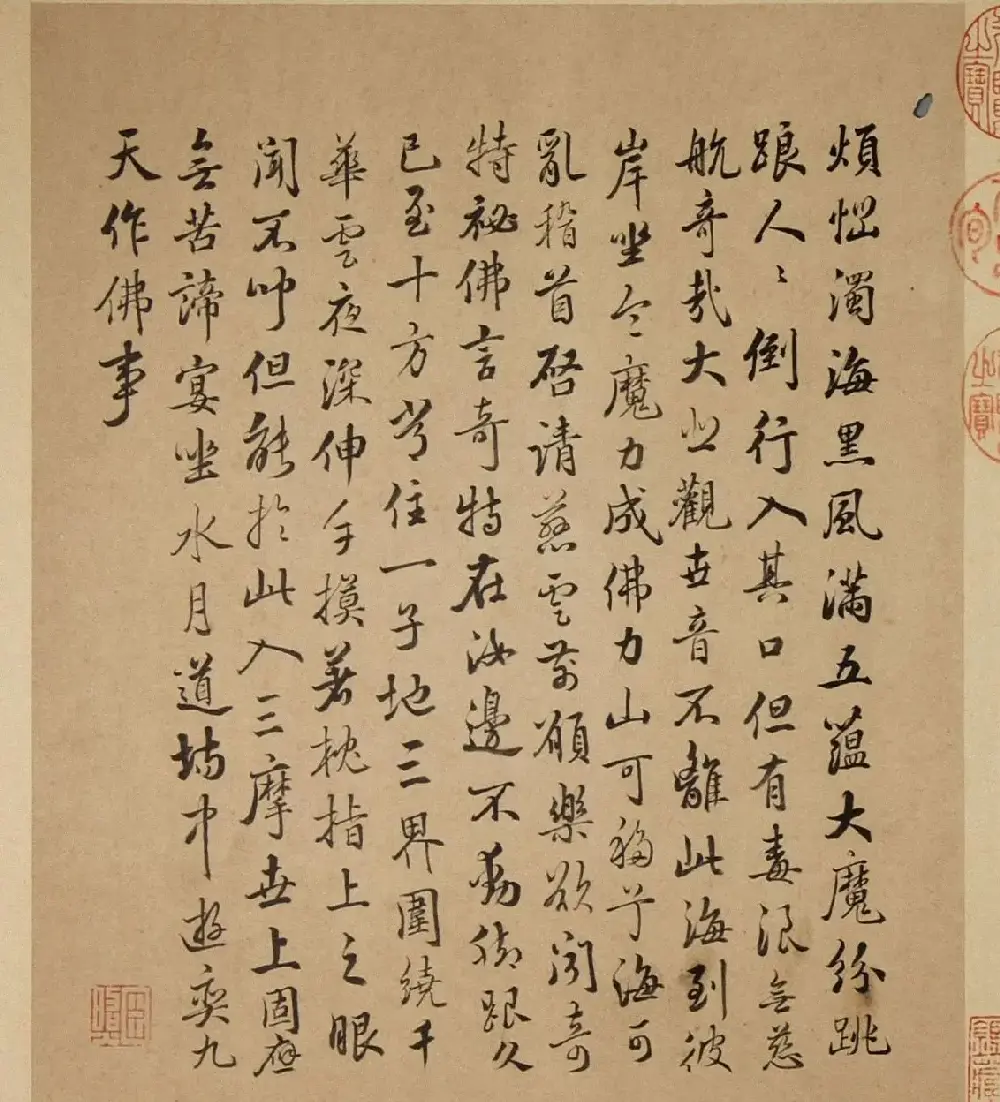 煩惱濁海黑風滿五蘊大魔紛跳
踉人〻倒行入其口但有毒浪無慈
航奇哉大悲觀世音不離此海到彼
岸坐令魔力成佛力山可移兮海可
亂稽首啓請慈雲前願樂欲聞奇
特祕佛言奇特在汝邊不動脚跟久
已至十方皆住一子地三界圍繞千
華雲夜深伸手摸著枕指上之眼
聞不但能於此入三摩世上固應
無苦諦宴坐水月道場中遊奕九
天作佛事
之寶
之寶